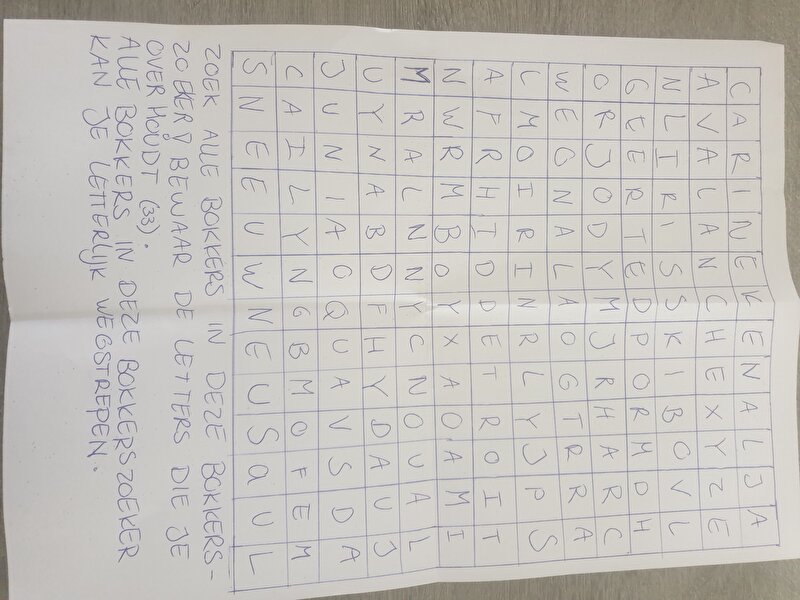 C A R I N E K E N A L J A
A V A L A N C H E X Y Z E
N L I R I S S K I B O V L
G E E R T E D P O R M D H
O R J O D Y M J R H A R C
W E G N A L A O G T R R A
L M O I R I N R L Y J P S
A F R H I D D E T R O I T
N W R M B O Y X A O A M I
M R A L N N Y C N O U A L
U Y N A B D F H Y D A U J
J U N I A O Q U A V S D A
C A I L Y N G B M O F E M
S N E E U W N E U S a U L
ZOEK ALLE BOKKERS IN DEZE BOKKERS-
ZOEKER! BEWAAR DE LETTERS DIE JE
OVERHOUDT (33).
ALLE BOKKERS IN DEZE BOKKERSZOEKER
KAN JE LETTERLIJK WEGSTREPEN.